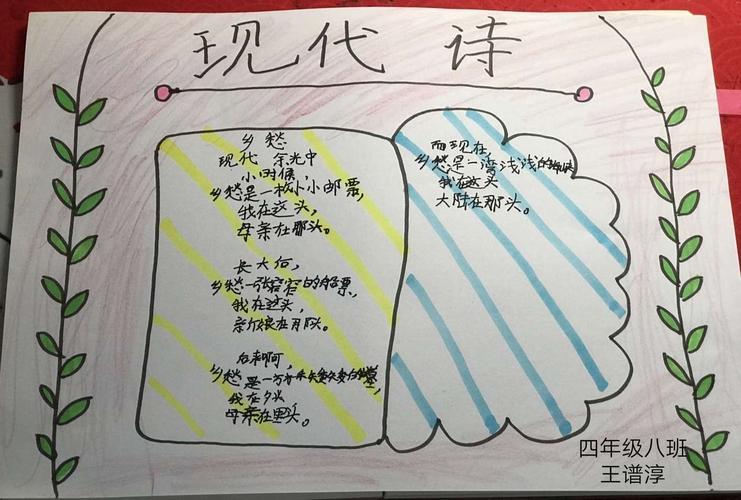 现代诗
乡愁
现代 余光中
小时候，
乡愁是一枚小小邮票，
我在这头，
母亲在那头。
长大后，
乡愁一张窄窄的船票，
我在这头，
新娘在那头。
后来啊，
乡愁是一方矮矮的坟墓，
我在外头
母亲在里头。
而现在，
乡愁是一湾浅浅的海峡
我在这头
大陆在那头。
四年级八班
王谱淳